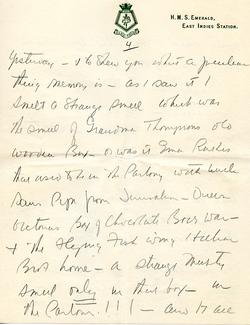 H.M.S. EMERALD,
EAST INDIES STATION.
4
Yesterday – & to shew you what a peculiar
thing memory is – as I saw it I
smelt a strange smell which was
the smell of Grandma Thompsons old
wooden Box – or was it
that used to be in the Parlour with
from Jerusalem – Queen
Box of Chocolate Boer War –
& the Flying Fish wing
Brot home – a strange musty
smell only in that box – in
the Parlour ! ! ! – and it all